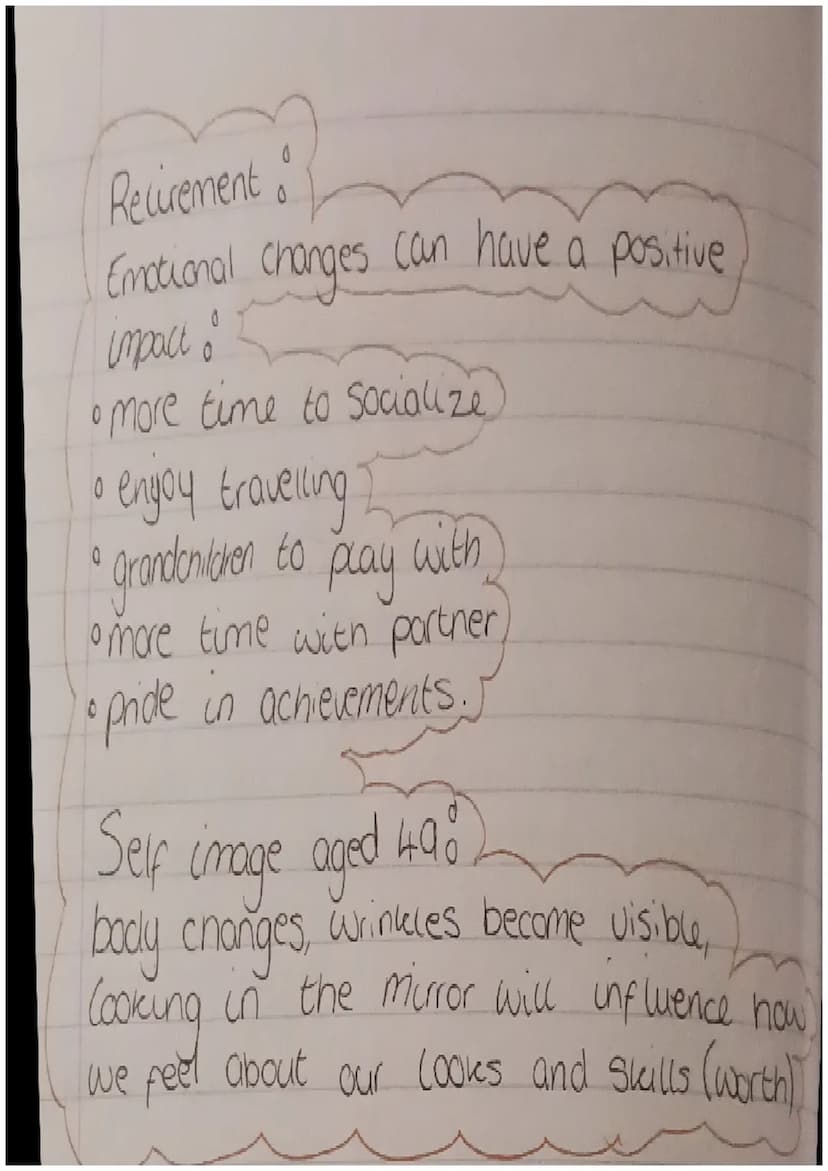 Retirement :
Emotional changes can have a positive
impact :
• more time to socialize
• enjoy travelling
• grandchildren to play with
• more time with partner
• pride in achievements.
Self image aged 49 :
body changes, wrinkles become visible,
looking in the mirror will influence how
we feel about our looks and skills (worth)